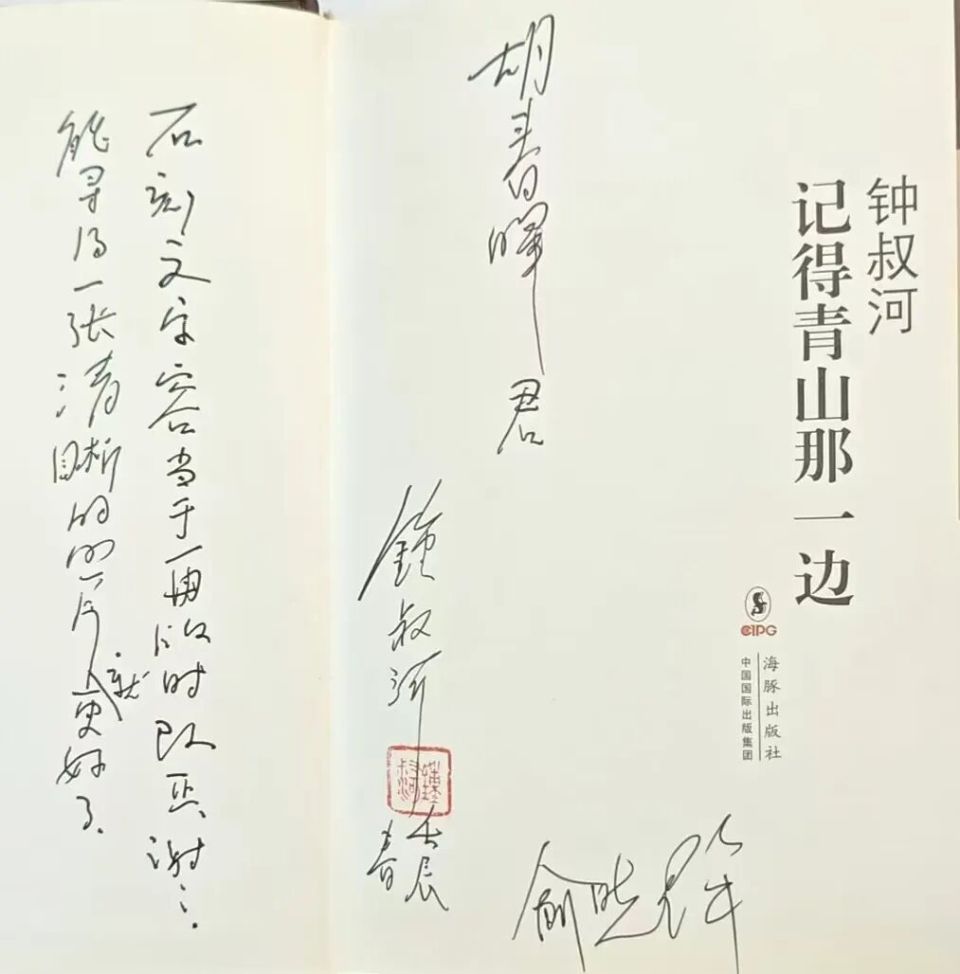 钟叔河
记得青山那一边
CIPG
海豚出版社
中国国际出版集团
胡春暉君
鍾叔河
壬辰
春
俞晓群
石刻文字容当于再版时改正，谢谢.
能寻得一张清晰的照片就更好了.